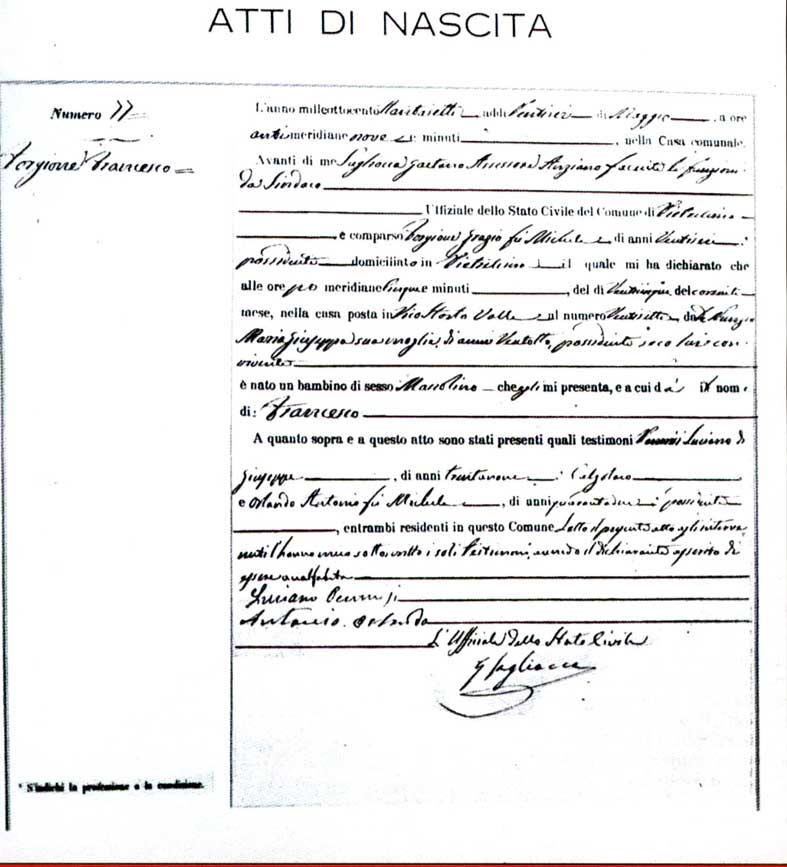 ATTI DI NASCITA
Numero 77
Forgione Francesco
L'anno milleottocento ottantasette addì Ventisei di Maggio, a ore
antimeridiane nove e minuti, nella Casa comunale.
Avanti di me Gaetano Assessore Anziano facente le funzioni
da Sindaco
Uffiziale dello Stato Civile del Comune di Pietrelcina
, è comparso Forgione Grazio fu Michele di anni Ventisei
possidente domiciliato in Pietrelcina il quale mi ha dichiarato che
alle ore po meridiane cinque e minuti, del dì Venticinque del corrente
mese, nella casa posta in Vico Storto Valle al numero Ventisette da De Nunzio
Maria Giuseppa sua moglie, di anni Ventotto, possidente seco lui con-
vivente
è nato un bambino di sesso Mascolino che egli mi presenta, e a cui dà il nome
di: Francesco
A quanto sopra e a questo atto sono stati presenti quali testimoni Pennisi Luciano di
Giuseppe, di anni trentanove Calzolaio
e Orlando Antonio fu Michele, di anni quarantadue possidente
, entrambi residenti in questo Comune. Letto il presente atto agli interve-
nuti l'hanno meco sottoscritto i soli Testimoni, avendo il dichiarante asserito di
essere analfabeta
Luciano Pennisi
Antonio Orlando
L'Uffiziale dello Stato Civile
* S'indichi la professione o la condizione.